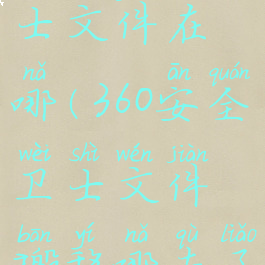 士文件在
nǎ ān quán
哪(360安全
wèi shì wén jiàn
卫士文件
bān yí nǎ qù liǎo
搬移哪去了